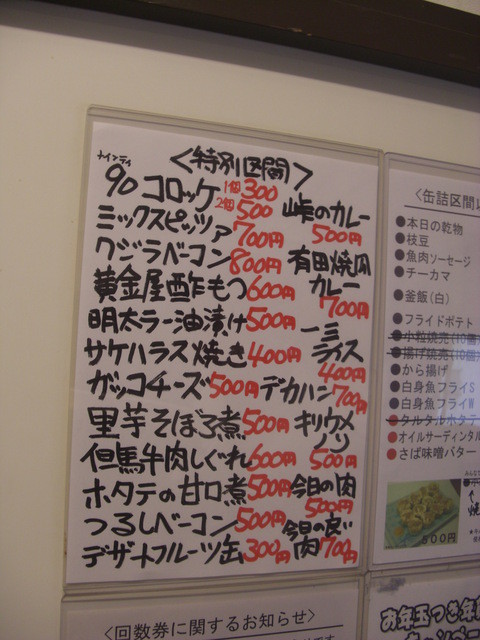 <特別区間>
ナインティ
90コロッケ 1個300
2個500
ミックスピッツァ700円
クジラベーコン800円
黄金屋酢もつ600円
明太ラー油漬け500円
サケハラス焼き400円
ガッコチーズ500円
里芋そぼろ煮500円
但馬牛肉しぐれ600円
ホタテの甘口煮500円
つるしベーコン500円
デザートフルーツ缶300円
峠のカレー
500円
有田焼風
カレー
700円
一三
ライス
400円
デカハン700円
キリウメ
ノリ
500円
今日の肉
500円
今日の良い
肉700円
<缶詰区間
●本日の乾物
●枝豆
●魚肉ソーセージ
●チーカマ
●釜飯(白)
●フライドポテト
●小粒焼売(10個
●揚げ焼売(10個)
●から揚げ
●白身魚フライS
●白身魚フライW
●タルタルホタテ
●オイルサーディンタル
●さば味噌バター
500円
<回数券に関するお知らせ>
お年玉つき年